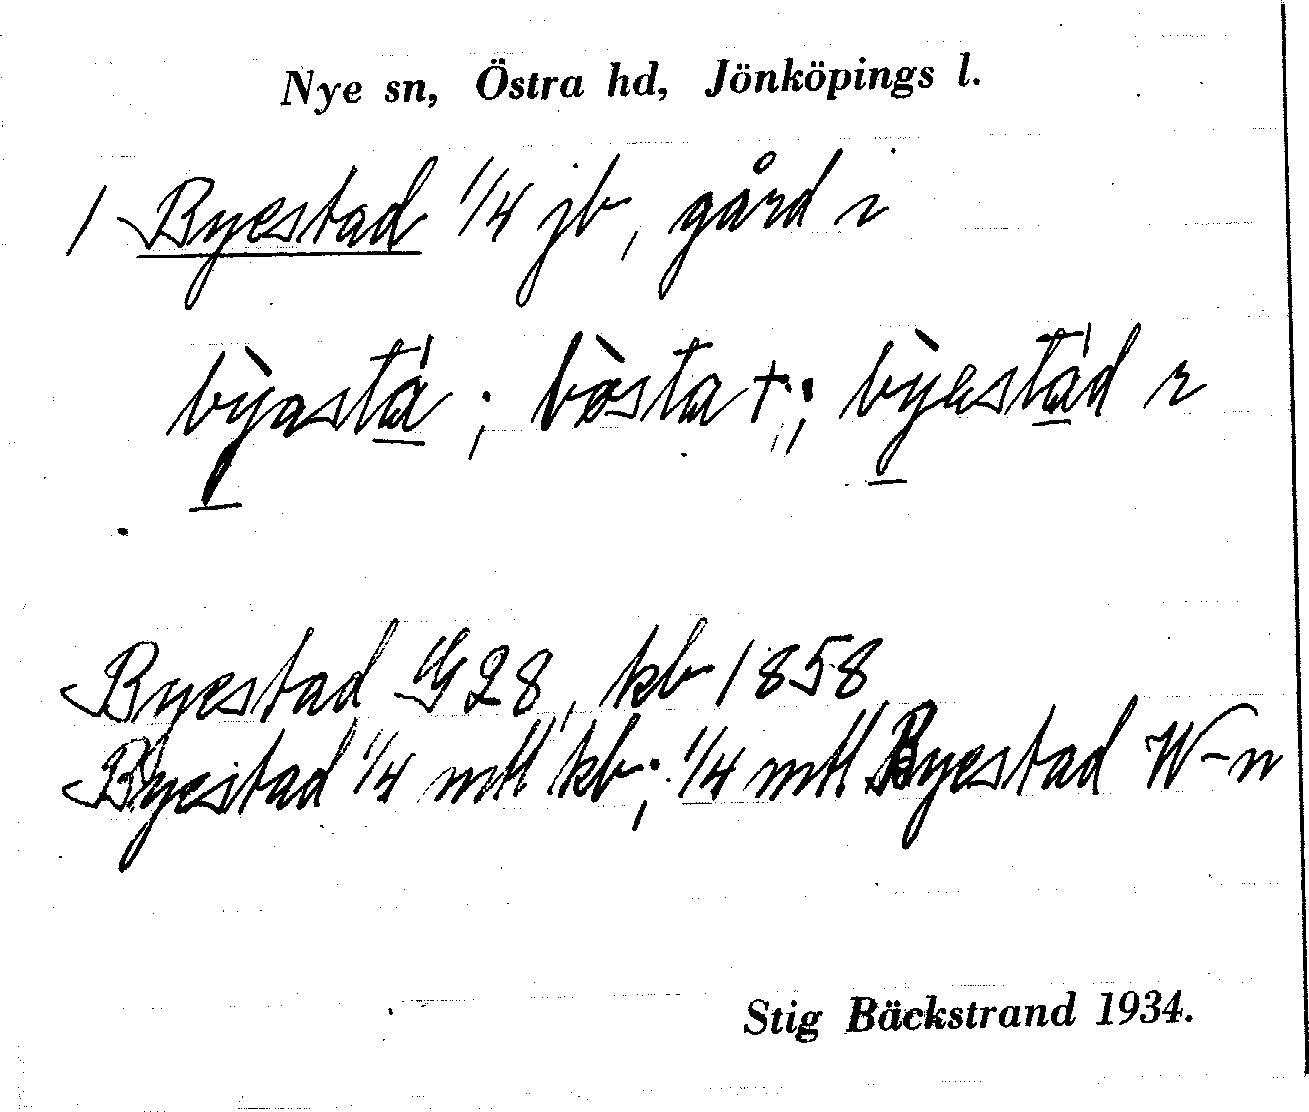 Nye sn, Östra hd, Jönköpings l.
1 Byestad 1/4 jb, gård i
bỳasta̍ ; bòsta †; ; bỳesta̍d r
Byestad G28, kb 1858
Byestad 1/4 mtl kb; 1/4 mtl Byestad W-n
Stig Bäckstrand 1934.